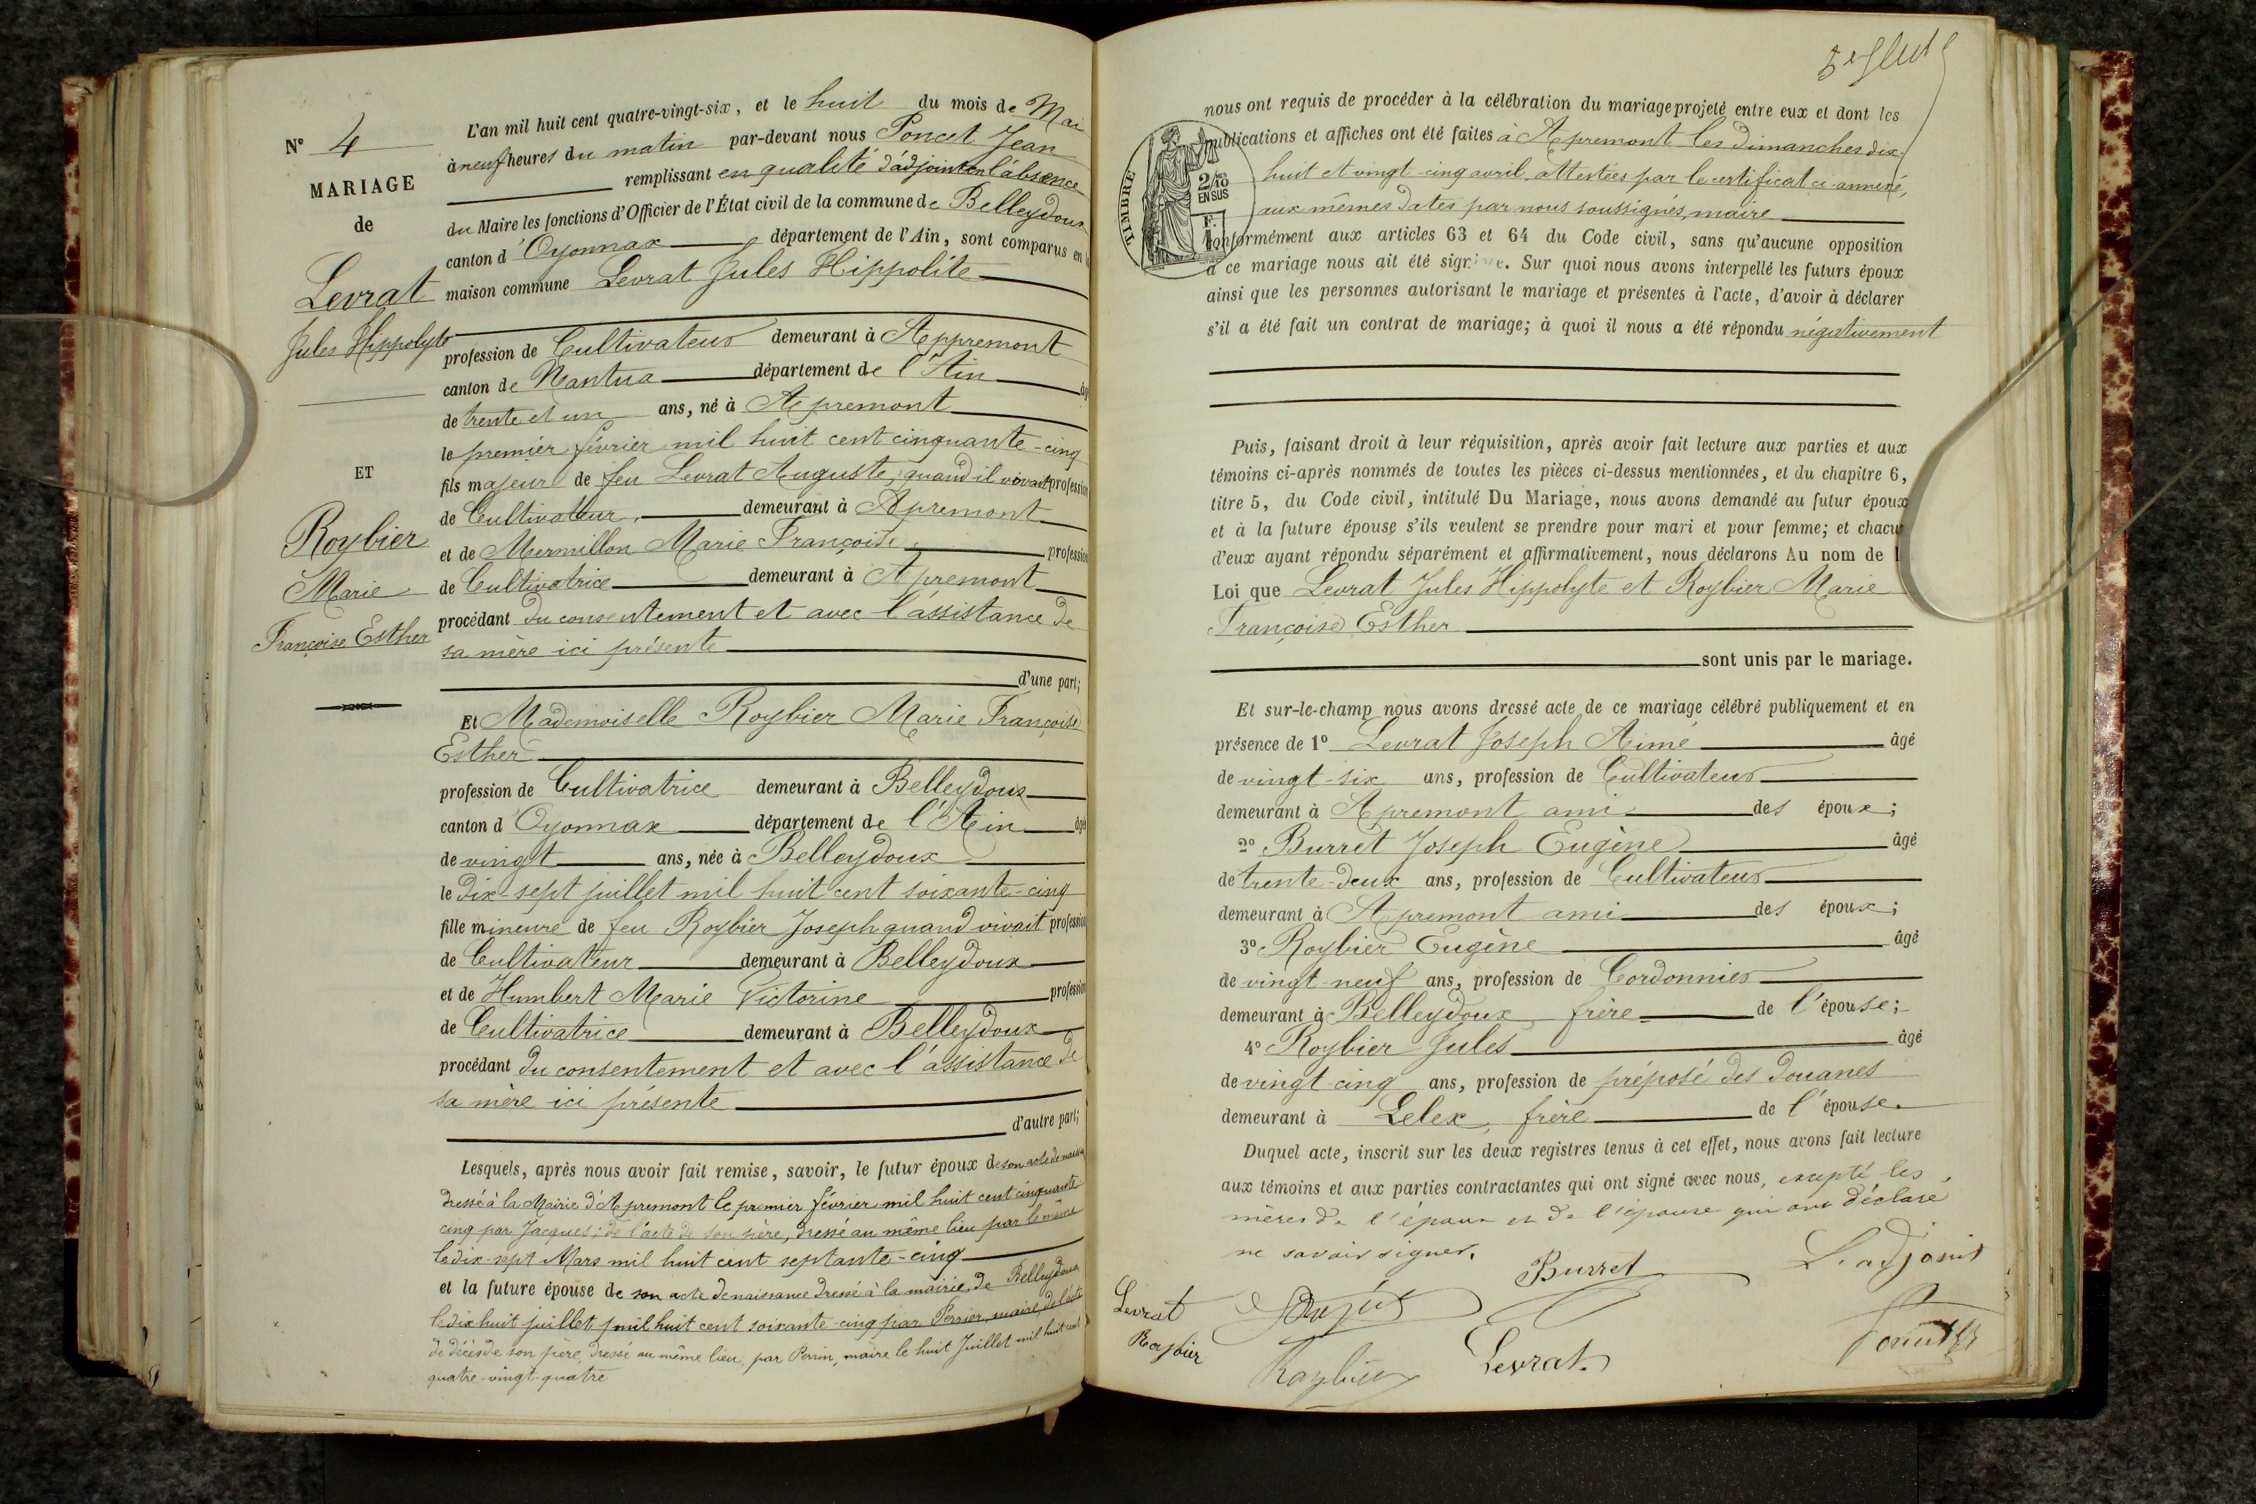 N° 4
MARIAGE
de
Levrat
Jules Hippolyte
ET
Roybier
Marie
Françoise Esther
L'an mil huit cent quatre-vingt-six, et le huit du mois de Mai
à neuf heures du matin par-devant nous Poncet Jean
remplissant en qualité d'adjoint en l'absence
du Maire les fonctions d'Officier de l'État civil de la commune de Belleydoux
canton d'Oyonnax département de l'Ain, sont comparus en la
maison commune Levrat Jules Hippolite
profession de Cultivateur demeurant à Appremont
canton de Nantua département de l'Ain âgé
de trente et un ans, né à Apremont
le premier février mil huit cent cinquante-cinq
fils majeur de feu Levrat Auguste, quand il vivait profession
de Cultivateur, demeurant à Apremont
et de Mermillon Marie Françoise profession
de Cultivatrice demeurant à Apremont
procédant du consentement et avec l'assistance de
sa mère ici présente
d'une part;
Et Mademoiselle Roybier Marie Françoise
Esther
profession de Cultivatrice demeurant à Belleydoux
canton d'Oyonnax département de l'Ain âgée
de vingt ans, née à Belleydoux
le dix-sept juillet mil huit cent soixante-cinq
fille mineure de feu Roybier Joseph quand vivait profession
de Cultivateur demeurant à Belleydoux
et de Humbert Marie Victorine profession
de Cultivatrice demeurant à Belleydoux
procédant du consentement et avec l'assistance de
sa mère ici présente
d'autre part;
Lesquels, après nous avoir fait remise, savoir, le futur époux de son acte de naissance
dressé à la Mairie d'Apremont le premier février mil huit cent cinquante
cinq par Jacques; de l'acte de son père, dressé au même lieu par le même
le dix-sept Mars mil huit cent septante-cinq
et la future épouse de son acte de naissance dressé à la mairie de Belleydoux
le dix huit juillet mil huit cent soixante-cinq par Perrier, maire, de l'acte
de décès de son père, dressé au même lieu, par Perrin, maire le huit Juillet mil huit cent
quatre-vingt-quatre
TIMBRE
2/10
EN SUS
nous ont requis de procéder à la célébration du mariage projeté entre eux et dont les
publications et affiches ont été faites à Apremont les dimanches dix-
huit et vingt-cinq avril attestées par le certificat ci-annexé,
aux mêmes dates par nous soussignés, maire
conformément aux articles 63 et 64 du Code civil, sans qu'aucune opposition
à ce mariage nous ait été signifiée. Sur quoi nous avons interpellé les futurs époux
ainsi que les personnes autorisant le mariage et présentes à l'acte, d'avoir à déclarer
s'il a été fait un contrat de mariage; à quoi il nous a été répondu négativement
Puis, faisant droit à leur réquisition, après avoir fait lecture aux parties et aux
témoins ci-après nommés de toutes les pièces ci-dessus mentionnées, et du chapitre 6,
titre 5, du Code civil, intitulé Du Mariage, nous avons demandé au futur époux
et à la future épouse s'ils veulent se prendre pour mari et pour femme; et chacun
d'eux ayant répondu séparément et affirmativement, nous déclarons Au nom de l
Loi que Levrat Jules Hippolyte et Roybier Marie
Françoise Esther
sont unis par le mariage.
Et sur-le-champ nous avons dressé acte de ce mariage célébré publiquement et en
présence de 1° Levrat Joseph Aimé âgé
de vingt-six ans, profession de Cultivateur
demeurant à Apremont ami des époux;
2° Burret Joseph Eugène âgé
de trente-deux ans, profession de Cultivateur
demeurant à Apremont ami des époux;
3° Roybier Eugène âgé
de vingt-neuf ans, profession de Cordonnier
demeurant à Belleydoux, frère de l'épouse;
4° Roybier Jules âgé
de vingt-cinq ans, profession de préposé des douanes
demeurant à Lelex, frère de l'épouse.
Duquel acte, inscrit sur les deux registres tenus à cet effet, nous avons fait lecture
aux témoins et aux parties contractantes qui ont signé avec nous, excepté les
mères de l'époux et de l'épouse qui ont déclaré
ne savoir signer.
Burret L'adjoint
Levrat
Roybier
Roybier Levrat